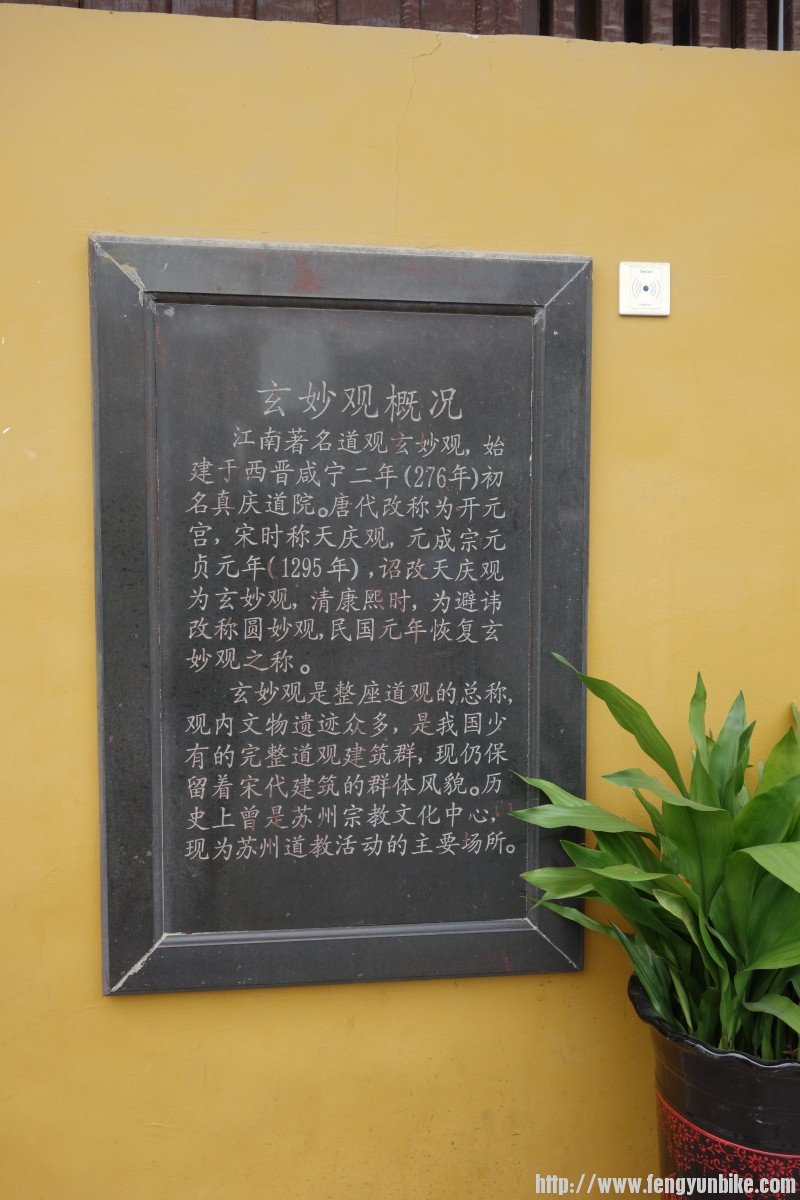 玄妙观概况
江南著名道观玄妙观，始
建于西晋咸宁二年(276年)初
名真庆道院。唐代改称为开元
宫，宋时称天庆观，元成宗元
贞元年(1295年)，诏改天庆观
为玄妙观，清康熙时，为避讳
改称圆妙观，民国元年恢复玄
妙观之称。
玄妙观是整座道观的总称，
观内文物遗迹众多，是我国少
有的完整道观建筑群，现仍保
留着宋代建筑的群体风貌。历
史上曾是苏州宗教文化中心，
现为苏州道教活动的主要场所。
http://www.fengyunbike.com